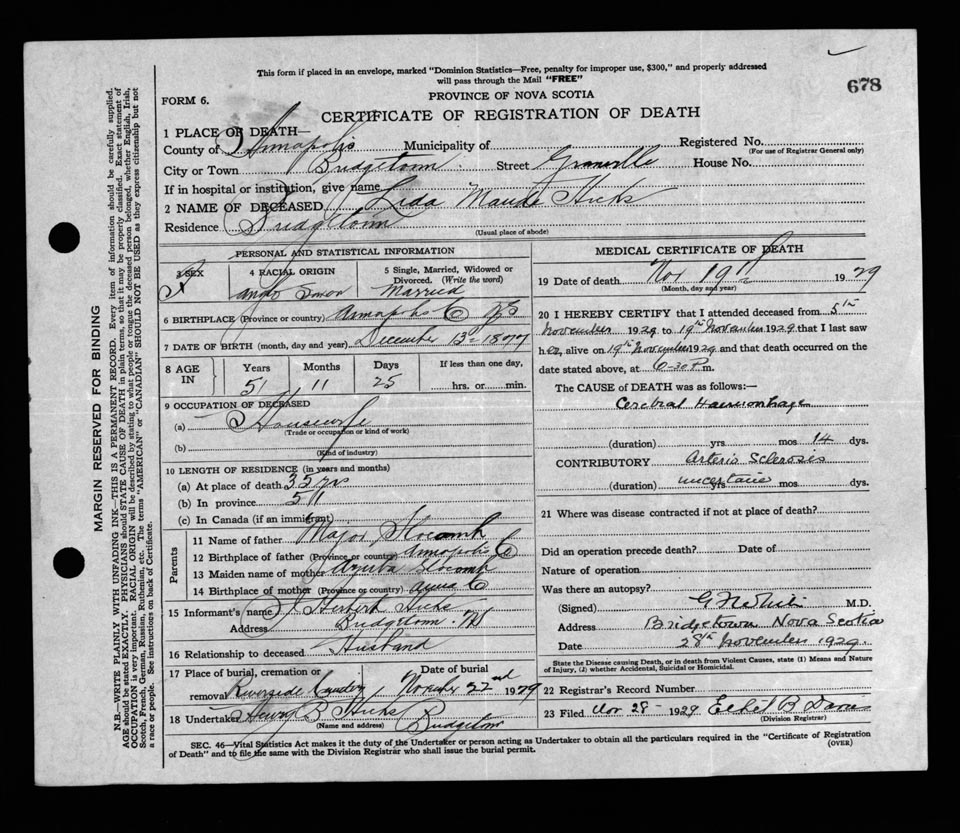 This form if placed in an envelope, marked "Dominion Statistics—Free, penalty for improper use, $300," and properly addressed
will pass through the Mail "FREE"
678
PROVINCE OF NOVA SCOTIA
FORM 6.
CERTIFICATE OF REGISTRATION OF DEATH
1 PLACE OF DEATH—
County of Annapolis Municipality of Registered No.
(For use of Registrar General only)
City or Town Bridgetown Street Granville House No.
If in hospital or institution, give name
2 NAME OF DECEASED Lida Maude Hicks
Residence Bridgetown
(Usual place of abode)
PERSONAL AND STATISTICAL INFORMATION
3 SEX 4 RACIAL ORIGIN 5 Single, Married, Widowed or Divorced. (Write the word)
F Anglo Married
6 BIRTHPLACE (Province or country) Annapolis Co NS
7 DATE OF BIRTH (month, day and year) December 13th 1877
8 AGE IN Years Months Days If less than one day,
51 11 25 hrs. or min.
9 OCCUPATION OF DECEASED
(a) Housewife
(Trade or occupation or kind of work)
(b)
(Kind of industry)
10 LENGTH OF RESIDENCE (in years and months)
(a) At place of death 35 yrs
(b) In province 51
(c) In Canada (if an immigrant)
Parents
11 Name of father Major Slocomb
12 Birthplace of father (Province or country) Annapolis Co
13 Maiden name of mother Slocomb
14 Birthplace of mother (Province or country) Anna Co
15 Informant's name Herbert Hicks
Address Bridgetown NS
16 Relationship to deceased Husband
17 Place of burial, cremation or Date of burial
removal Riverside November 22nd 1929
18 Undertaker Henry B Hicks Bridgetown
(Name and address)
MEDICAL CERTIFICATE OF DEATH
19 Date of death Nov 19th 1929
(Month, day and year)
20 I HEREBY CERTIFY that I attended deceased from 5th
November 1929 to 19th November 1929 that I last saw
her, alive on 19th November 1929 and that death occurred on the
date stated above, at 6-30 P.m.
The CAUSE of DEATH was as follows:—
Cerebral Haemorrhage
(duration) yrs. mos 14 dys.
CONTRIBUTORY Arterio Sclerosis
(duration) uncertain yrs mos dys.
21 Where was disease contracted if not at place of death?
Did an operation precede death? Date of
Nature of operation
Was there an autopsy?
(Signed) M.D.
Address Bridgetown Nova Scotia
Date 28th November 1929.
State the Disease causing Death, or in death from Violent Causes, state (1) Means and Nature
of Injury, (2) whether Accidental, Suicidal or Homicidal.
22 Registrar's Record Number
23 Filed Nov 28- 1929 B
(Division Registrar)
SEC. 46—Vital Statistics Act makes it the duty of the Undertaker or person acting as Undertaker to obtain all the particulars required in the "Certificate of Registration
of Death" and to file the same with the Division Registrar who shall issue the burial permit.
(OVER)
MARGIN RESERVED FOR BINDING
N.B.—WRITE PLAINLY WITH UNFADING INK—THIS IS A PERMANENT RECORD. Every item of information should be carefully supplied.
AGE should be stated EXACTLY. PHYSICIANS should STATE CAUSE OF DEATH in plain terms, so that it may be properly classified. Exact statement of
OCCUPATION is very important. RACIAL ORIGIN will be described by stating to what people or tongue the deceased person belonged, whether English, Irish,
Scotch, French, German, Russian, Ruthenian, etc. The terms "AMERICAN" or "CANADIAN" SHOULD NOT BE USED as they express citizenship but not
a race or people. See instructions on back of Certificate.